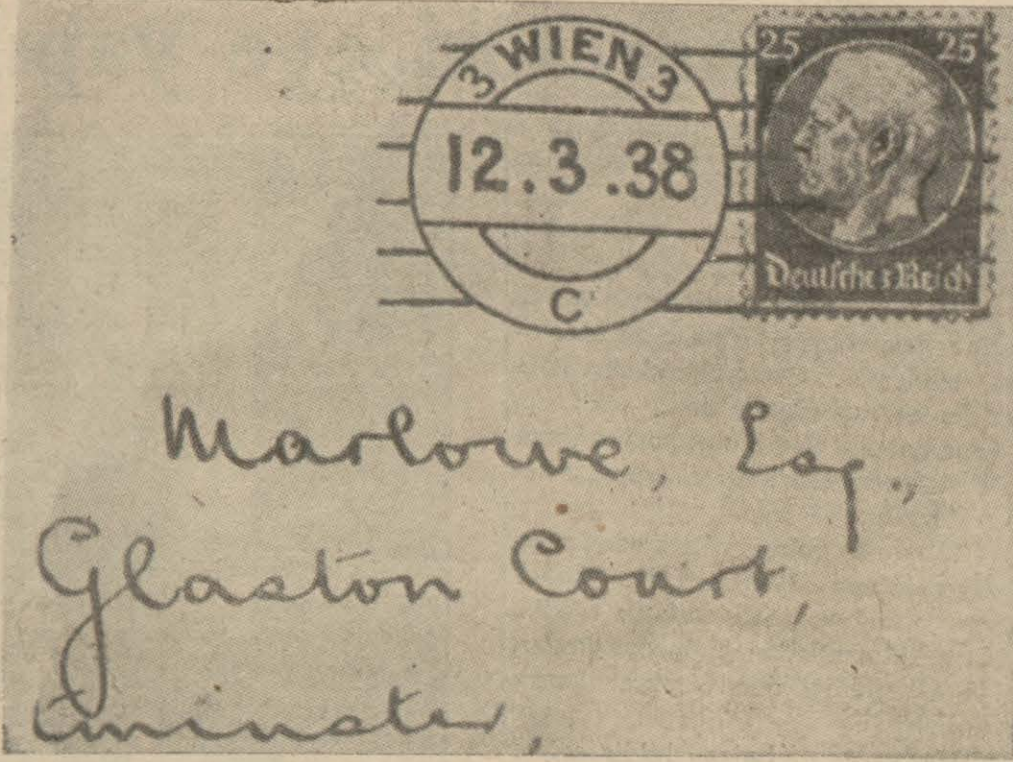 3 WIEN 3
12.3.38
C
25 25
Deutsches Reich
Marlowe, Esq.,
Glaston Court,
minster,